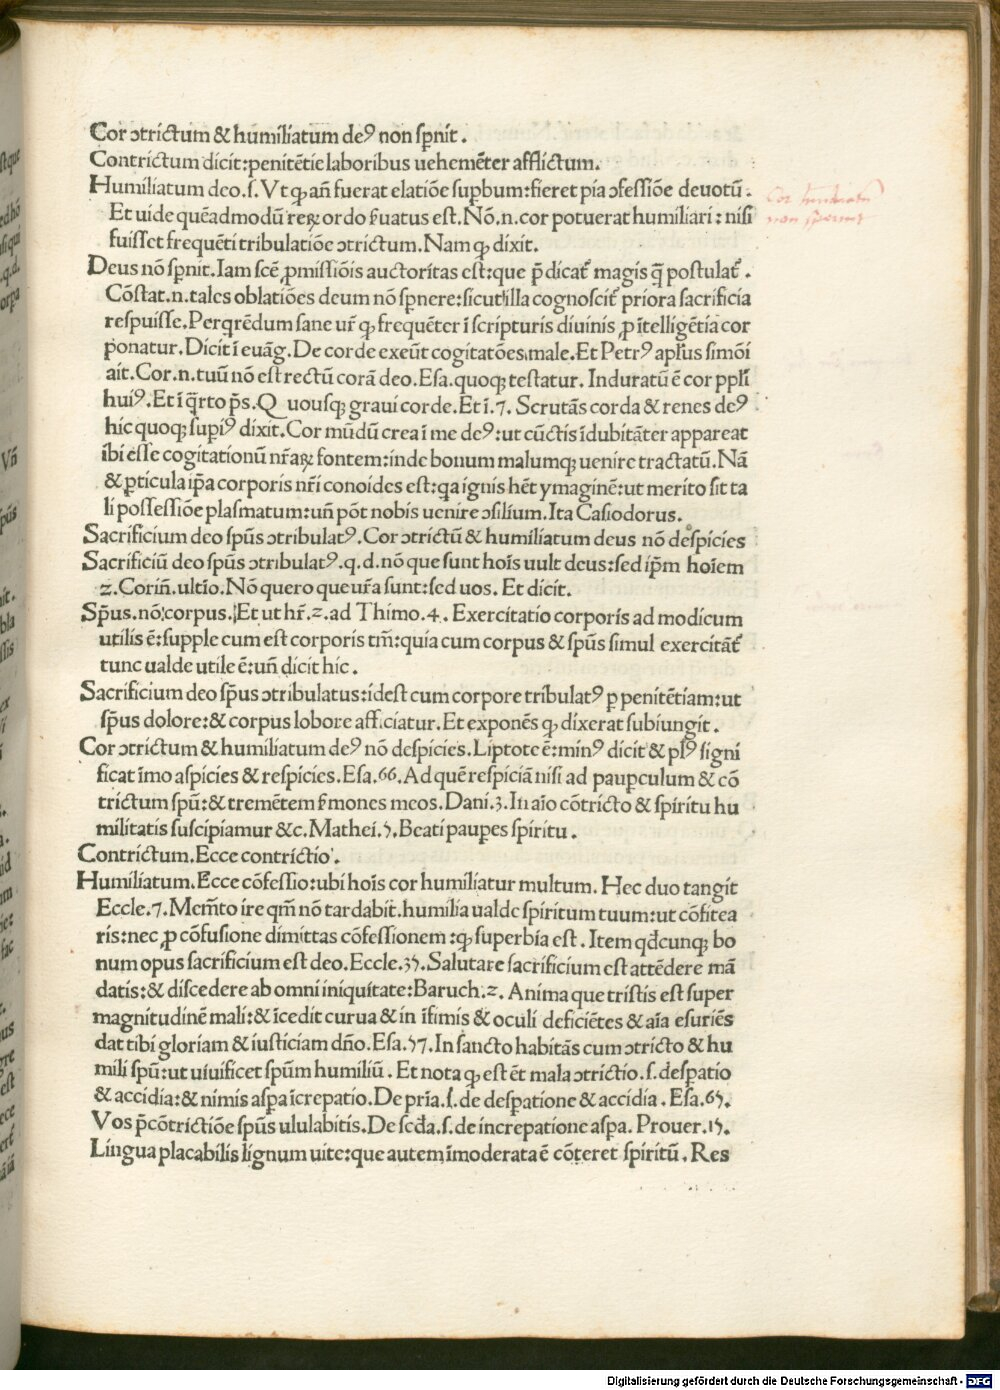 Cor ↄtrictum & humiliatum deꝰ non ſp̲nit.
Contrictum dicit:penitētie laboribus uehemēter afflictum.
Humiliatum deo.ſ.Vt ꝙ añ fuerat elatiōe ſup̲bum:fieret pia ↄfeſſiōe deuotū.
Et uide quēadmodū reꝝ ordo ẜuatus eſt.Nō.n.cor potuerat humiliari:niſi
fuiſſet frequēti tribulatiōe ↄtrictum.Nam ꝙ dixit.
Deus nō ſp̲nit.Iam ſcē ꝓmiſſiōis auctoritas eſt:que p̄dicat᷑ magis q̄ poſtulat᷑.
Cōſtat.n.tales oblatiōes deum nō ſp̲nere:ſicut illa cognoſcit᷑ priora ſacrificia
reſpuiſſe.Perqrēdum ſane ur̄ ꝙ frequēter ī ſcripturis diuinis ꝓ ītelligētia cor
ponatur.Dicit ī euāg.De corde exeūt cogitatōes male.Et Petrꝰ apl̄us ſimōi
ait.Cor.n.tuū nō eſt rectū corā deo.Eſa.quoqꝫ teſtatur. Induratū ē cor ppl̄i
huiꝰ.Et ī q̄rto p̄s.Q uouſqꝫ graui corde.Et ī.7. Scrutās corda & renes deꝰ
hic quoqꝫ ſupiꝰ dixit.Cor mūdū crea ī me deꝰ:ut cūctis īdubitāter appareat
ibi eſſe cogitationū nr̄aꝝ fontem:inde bonum malumqꝫ uenire tractatū.Nā
& ꝑticula ip̄a corporis nr̄i conoides eſt:qa ignis hēt ymaginē:ut merito ſit ta
li poſſeſſiōe plaſmatum:uñ pōt nobis uenire ↄſilium.Ita Caſiodorus.
Sacrificium deo ſp̄us ↄtribulatꝰ.Cor ↄtrictū & humiliatum deus nō deſpicies
Sacrificiū deo ſp̄us ↄtribulatꝰ.q.d.nō que ſunt hoīs uult deus:ſed ip̄m hoīem
2.Coriñ.ultīo.Nō quero que ur̄a ſunt:ſed uos. Et dicit.
Sp̄us.nō corpus.Et ut hr̄.2.ad Thimo.4. Exercitatio corporis ad modicum
utilis ē:ſupple cum eſt corporis tm̄:quia cum corpus & ſp̄us ſimul exercitāt᷑
tunc ualde utile ē:uñ dicit hic.
Sacrificium deo ſp̄us ↄtribulatus:ideſt cum corpore tribulatꝰ ꝑ penitētiam:ut
ſp̄us dolore:& corpus lobore afficiatur.Et exponēs ꝙ dixerat ſubiungit.
Cor ↄtrictum & humiliatum deꝰ nō deſpicies.Liptote ē:minꝰ dicit & plꝰ ſigni
ficat īmo aſpicies & reſpicies.Eſa.66.Ad quē reſpiciā niſi ad paup̲culum & cō
trictum ſpū:& tremētem ẜmones meos.Dani.3.In aīo cōtricto & ſpiritu hu
militatis ſuſcipiamur &c.Mathei.5.Beati paup̲es ſpiritu.
Contrictum.Ecce contrictio.
Humiliatum.Ecce cōfeſſio:ubi hoīs cor humiliatur multum. Hec duo tangit
Eccle.7.Mem̄to ire qm̄ nō tardabit.humilia ualde ſpiritum tuum:ut cōfitea
ris:nec ꝓ cōfuſione dimittas cōfeſſionem:ꝙ ſuperbia eſt. Item qd̄cunqꝫ bo
num opus ſacrificium eſt deo.Eccle.35.Salutare ſacrificium eſt attēdere mā
datis:& diſcedere ab omni iniquitate:Baruch.2. Anima que triſtis eſt ſuper
magnitudinē mali:& īcedit curua & in īfimis & oculi deficiētes & aīa eſuriēs
dat tibi gloriam & iuſticiam dn̄o.Eſa.57.In ſancto habitās cum ↄtricto & hu
mili ſpū:ut uiuificet ſpūm humiliū. Et nota ꝙ eſt ēt mala ↄtrictio.ſ.deſpatio
& accidia:& nimis aſpa īcrepatio.De pria.ſ.de deſpatione & accidia. Eſa.65.
Vos p̄ cōtrictiōe ſp̄us ululabitis.De ſcd̄a.ſ.de increpatione aſpa. Prouer.15.
Lingua placabilis lignum uite:que autem īmoderata ē cōteret ſpiritū. Res
Digitalisierung gefördert durch die Deutsche Forschungsgemeinschaft - DFG